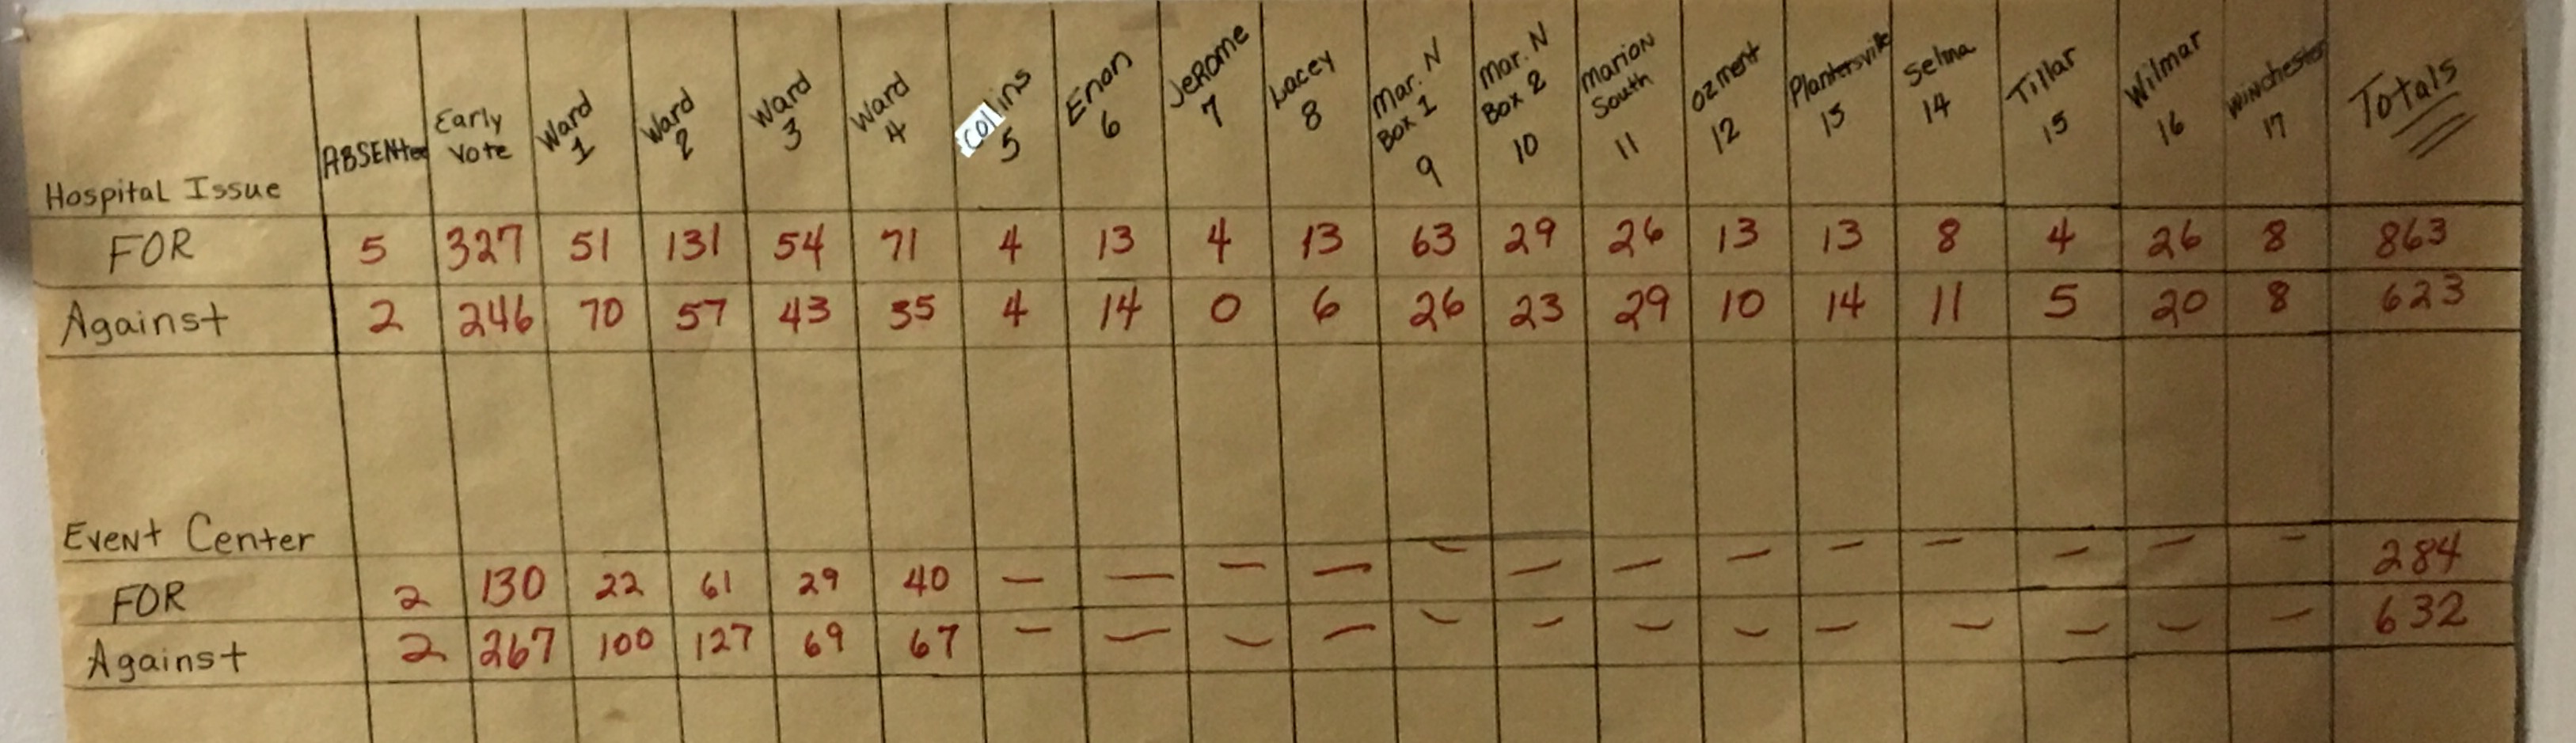 ABSENTee Early Vote Ward 1 Ward 2 Ward 3 Ward 4 Collins 5 Enon 6 JeROme 7 Lacey 8 Mar. N Box 1 9 Mar. N Box 2 10 Marion South 11 Ozment 12 Plantersville 13 Selma 14 Tillar 15 Wilmar 16 Winchester 17 Totals
Hospital Issue
FOR 5 327 51 131 54 71 4 13 4 13 63 29 26 13 13 8 4 26 8 863
Against 2 246 70 57 43 35 4 14 0 6 26 23 29 10 14 11 5 20 8 623
Event Center
FOR 2 130 22 61 29 40 — — — — — — — — — — — — — 284
Against 2 267 100 127 69 67 — — — — — — — — — — — — — 632